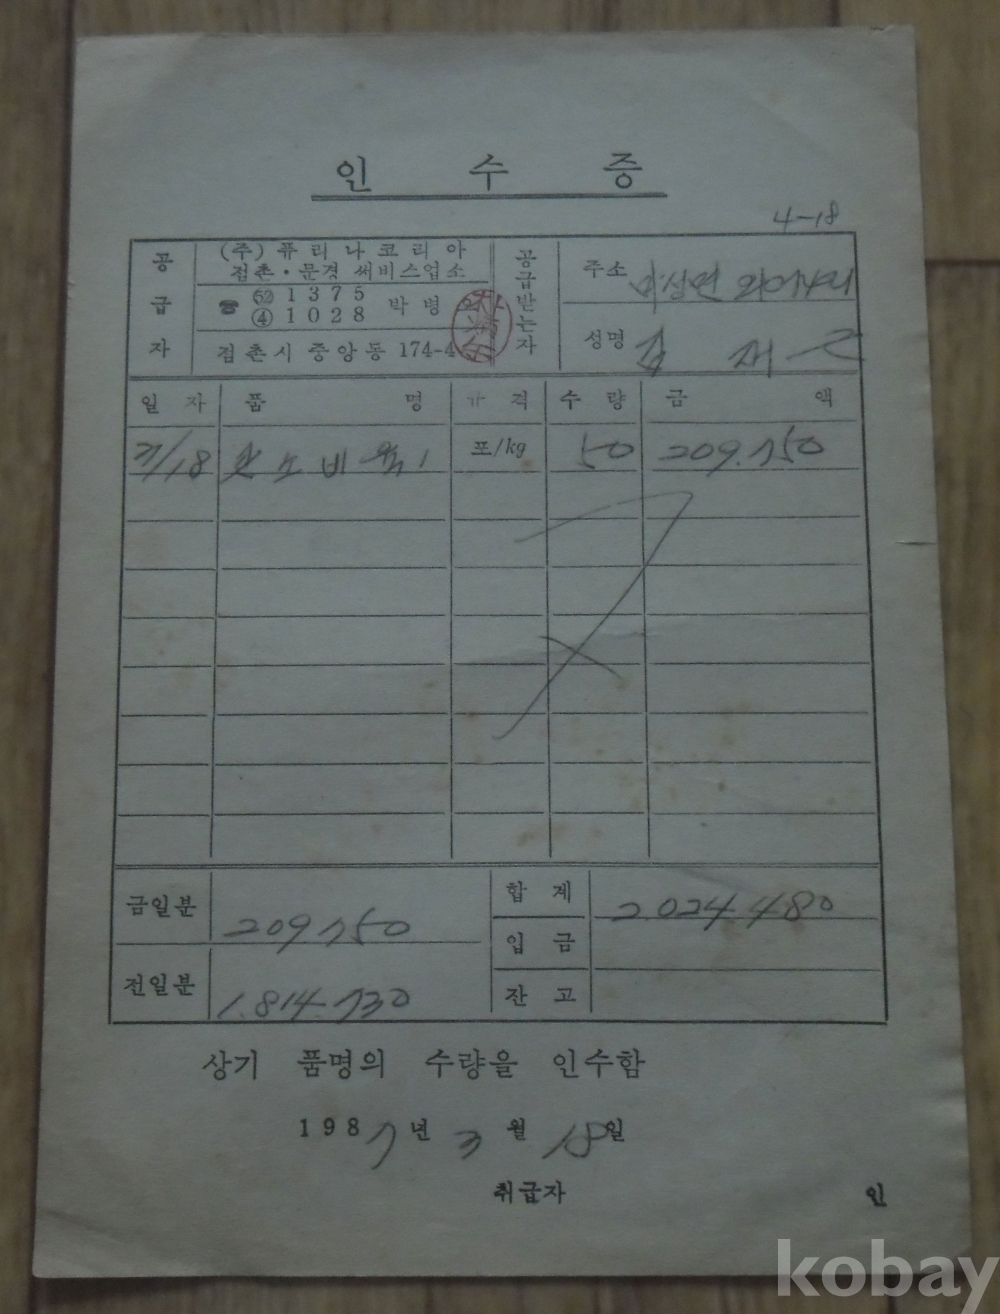 인 수 증
4-18
공급자
(주) 퓨리나코리아
점촌·문경 써비스업소
☎ 52 1375
④ 1028 박병
점촌시 중앙동 174-4
공급받는자
주소
성명 김
일자 품명 가격 수량 금액
3/18 포/kg 50 209.750
금일분 209.750
전일분 1.814.730
합계 2024.480
입금
잔고
상기 품명의 수량을 인수함
1987년 3월 18일
취급자 인
kobay